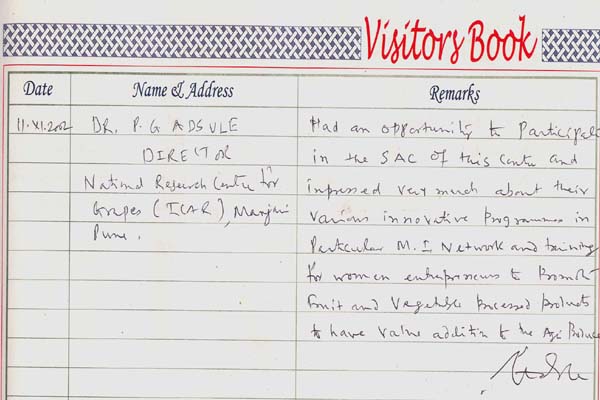 Visitors Book
Date Name & Address Remarks
11.XI.2002 DR. P. G ADSULE Had an opportunity to Participate
DIRECTOR in the SAC of this Centre and
National Research Centre for impressed very much about their
Grapes (ICAR), Manjri various innovative Programmes in
Pune. Particular M.I Network and training
for women entrepreneurs to Promote
Fruit and Vegetable Processed Products
to have value addition to the Agri Produce